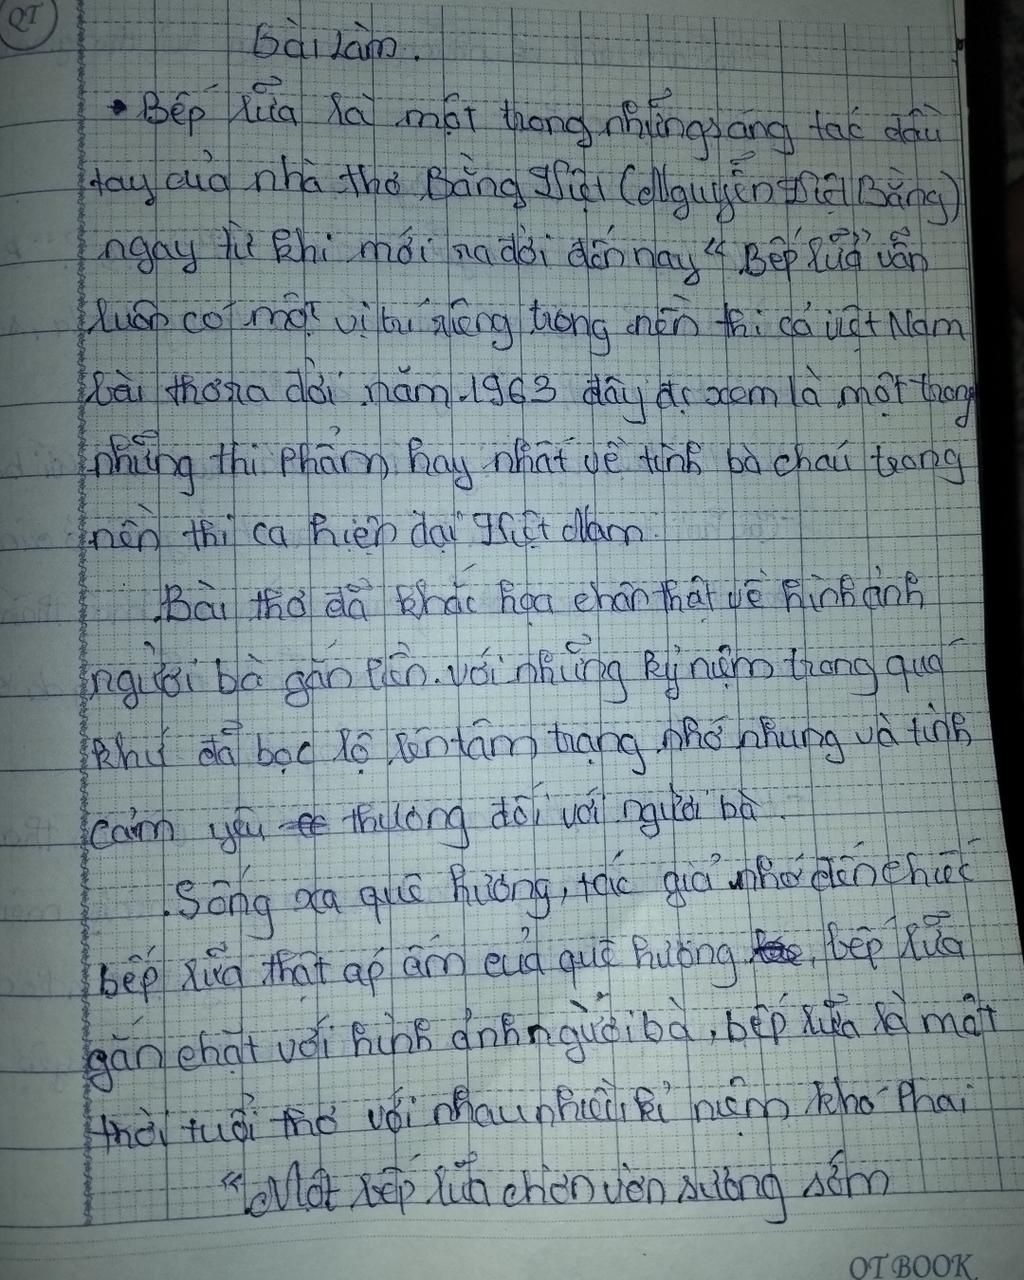 QT
bài làm.
• Bếp lửa là một trong những sáng tác đầu
tay của nhà thơ Bằng Việt (Nguyễn Việt Bằng)
ngay từ khi mới ra đời đến nay “Bếp lửa” vẫn
luôn có một vị trí riêng trong nền thi cá việt Nam
bài thơ ra đời năm 1963 đây đc xem là một trong
những thi phẩm hay nhất về tình bà cháu trong
nền thi ca hiện đại Việt Nam.
.Bài thơ đã khắc họa chân thật về hình ảnh
người bà gắn liền. với những kỷ niệm trong quá
khứ đã bọc lộ lên tâm trạng nhớ nhung và tình
cảm yêu thương đối với người bà.
.Sống xa quê hương, tác giả nhớ đến chiếc
bếp lửa thật ấp ấm của quê hương, bếp lửa
gắn chặt với hình ảnh người bà, bếp lửa là một
thời tuổi thơ với nhau nhiều kỉ niệm khó phai
“Một bếp lửa chờn vờn sương sớm
OT BOOK